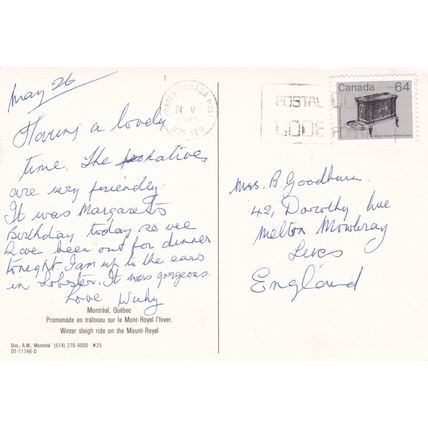 May 26
Having a lovely
time. The natives
are very friendly.
It was Margarets
Birthday today so we
have been out for dinner
tonight. I am up to the ears
in Lobster. It was gorgeous.
Love
Montréal, Québec
Promenade en traîneau sur le Mont-Royal l'hiver.
Winter sleigh ride on the Mount-Royal
Dis. A.W. Montréal (514) 270-4006 #25
DT-11746-D
Canada 64
POSTAL
CODE
CANADA POST
Mrs. B Goodburn.
42, Dorothy Ave
Melton Mowbray
Leics
England